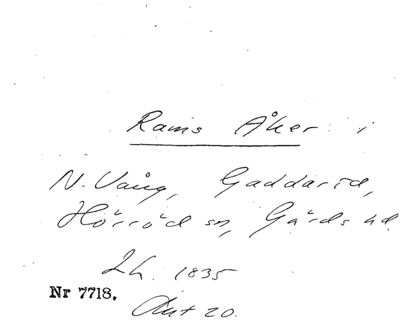 Rams Åker i
N. Vång, Gaddaröd,
Hörröd sn, Gärds hd.
Lh. 1835
Nr 7718.
Akt 20.